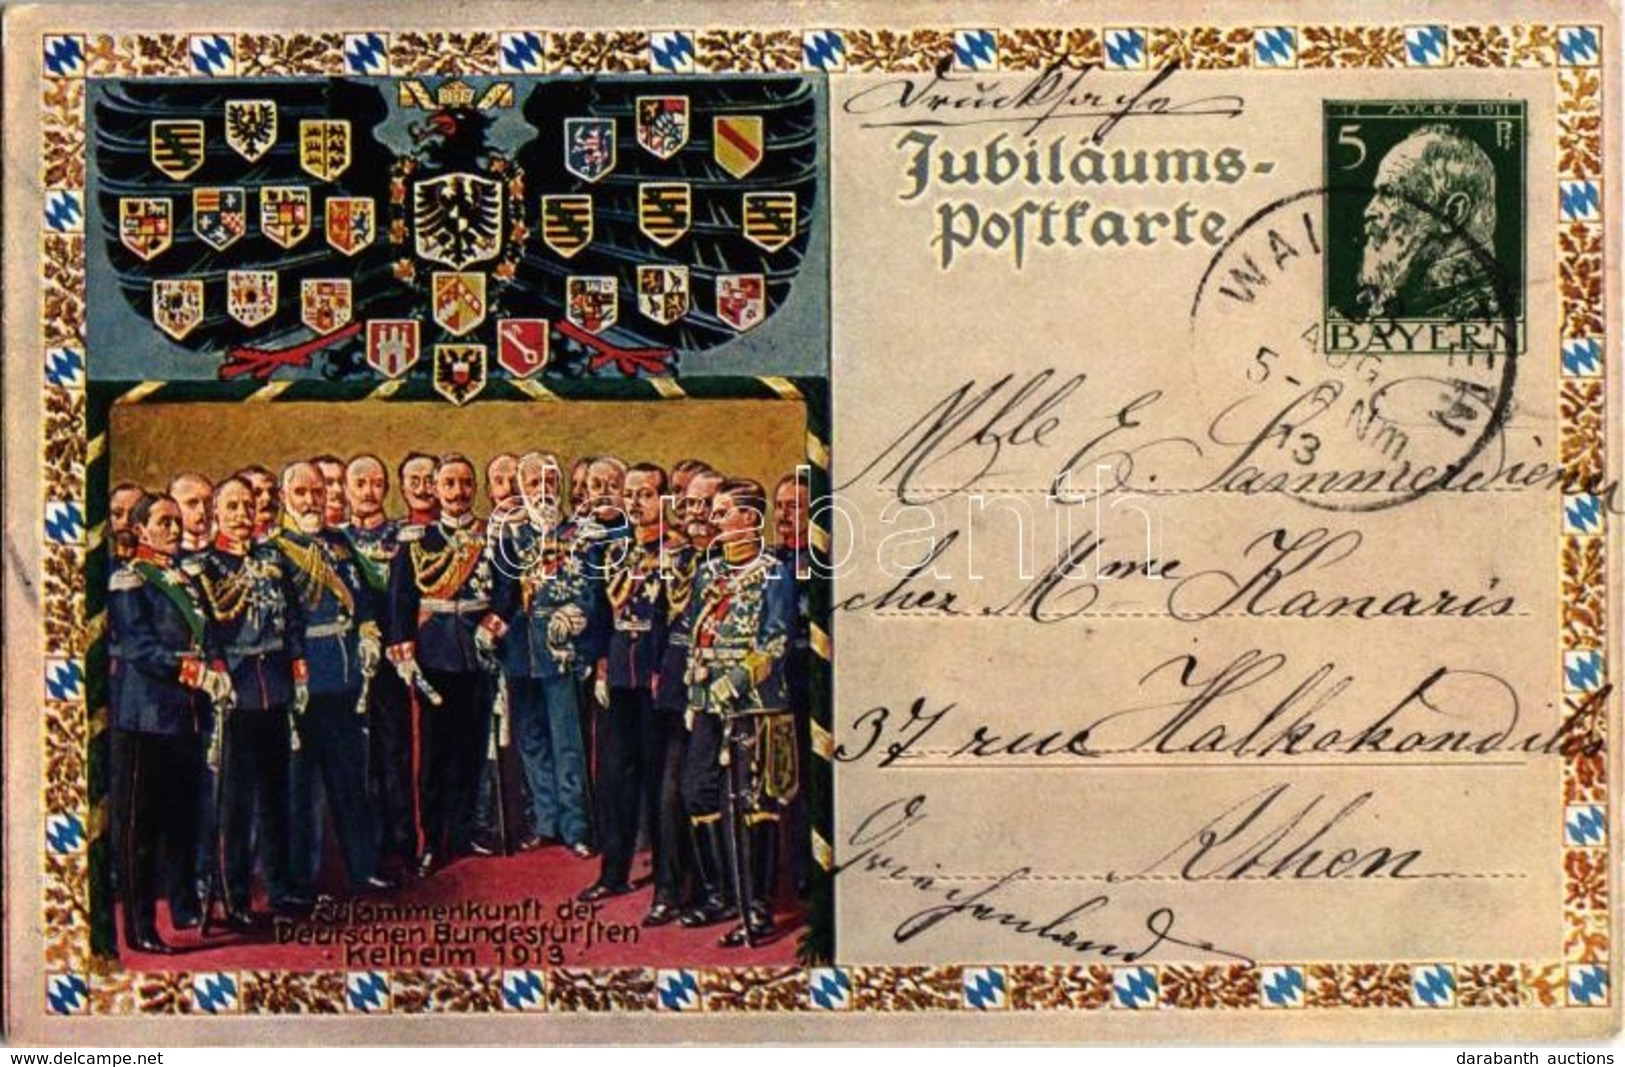 Drucksache
Jubiläums-
Postkarte
12 MÄRZ 1911
5 Pf
BAYERN
AUG
5-6 Nm
13
Mlle E. Sammerdiener
chez Mme Kanaris
37 rue Halkokondilis
Athen
Griechenland
Zusammenkunft der
Deutschen Bundesfürsten
· Kelheim 1913 ·
darabanth
www.delcampe.net
darabanth auctions